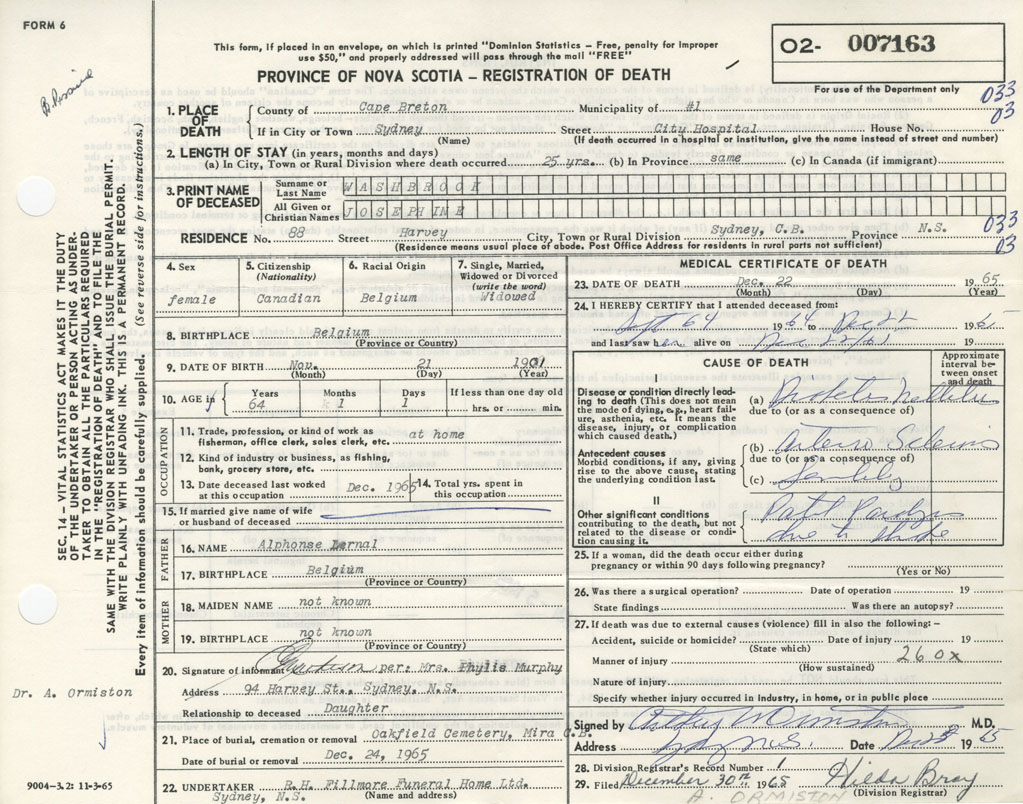 FORM 6
This form, if placed in an envelope, on which is printed "Dominion Statistics – Free, penalty for improper
use $50," and properly addressed will pass through the mail "FREE"
O2- 007163
For use of the Department only
PROVINCE OF NOVA SCOTIA – REGISTRATION OF DEATH
033
03
1. PLACE OF DEATH
County of Cape Breton Municipality of #1
If in City or Town Sydney Street City Hospital House No.
(Name) (If death occurred in a hospital or institution, give the name instead of street and number)
2. LENGTH OF STAY (in years, months and days)
(a) In City, Town or Rural Division where death occurred 25 yrs. (b) In Province same (c) In Canada (if immigrant)
3. PRINT NAME OF DECEASED
Surname or Last Name WASHBROOK
All Given or Christian Names JOSEPHINE
RESIDENCE No. 88 Street Harvey City, Town or Rural Division Sydney, C.B. Province N.S.
(Residence means usual place of abode. Post Office Address for residents in rural parts not sufficient)
033
03
4. Sex
female
5. Citizenship (Nationality)
Canadian
6. Racial Origin
Belgium
7. Single, Married, Widowed or Divorced (write the word)
Widowed
8. BIRTHPLACE Belgium
(Province or Country)
9. DATE OF BIRTH Nov. 21 1901
(Month) (Day) (Year)
10. AGE in
Years Months Days If less than one day old
64 1 1 hrs. or min.
OCCUPATION
11. Trade, profession, or kind of work as fisherman, office clerk, sales clerk, etc. at home
12. Kind of industry or business, as fishing, bank, grocery store, etc.
13. Date deceased last worked at this occupation Dec. 1965
14. Total yrs. spent in this occupation
15. If married give name of wife or husband of deceased
FATHER
16. NAME Alphonse Bernal
17. BIRTHPLACE Belgium
(Province or Country)
MOTHER
18. MAIDEN NAME not known
19. BIRTHPLACE not known
(Province or Country)
20. Signature of informant per: Mrs. Phylis Murphy
Address 94 Harvey St., Sydney, N.S.
Relationship to deceased Daughter
21. Place of burial, cremation or removal Oakfield Cemetery, Mira C.B.
Date of burial or removal Dec. 24, 1965
22. UNDERTAKER R.H. Fillmore Funeral Home Ltd.
Sydney, N.S. (Name and address)
MEDICAL CERTIFICATE OF DEATH
23. DATE OF DEATH Dec. 22 1965
(Month) (Day) (Year)
24. I HEREBY CERTIFY that I attended deceased from:
Sept 64 1964 to Dec 22 1965
and last saw her alive on Dec 22/65 19
CAUSE OF DEATH
Approximate interval between onset and death
I
Disease or condition directly leading to death (This does not mean the mode of dying, e.g., heart failure, asthenia, etc. It means the disease, injury, or complication which caused death.)
(a) Diabetes Mellitus
due to (or as a consequence of)
Antecedent causes
Morbid conditions, if any, giving rise to the above cause, stating the underlying condition last.
(b) Arterio Sclerosis
due to (or as a consequence of)
(c) Senility
II
Other significant conditions contributing to the death, but not related to the disease or condition causing it.
Partial Paralysis
due to stroke
25. If a woman, did the death occur either during pregnancy or within 90 days following pregnancy?
(Yes or No)
26. Was there a surgical operation? Date of operation 19
State findings Was there an autopsy?
27. If death was due to external causes (violence) fill in also the following: –
Accident, suicide or homicide? Date of injury 19
(State which)
Manner of injury 260x
(How sustained)
Nature of injury
Specify whether injury occurred in Industry, in home, or in public place
Signed by M.D.
Address Syd N.S. Date 1965
28. Division Registrar's Record Number 1
29. Filed December 30th 1965 Hilda Bray
A. ORMISTON (Division Registrar)
SEC. 14 – VITAL STATISTICS ACT MAKES IT THE DUTY
OF THE UNDERTAKER OR PERSON ACTING AS UNDER-
TAKER TO OBTAIN ALL THE PARTICULARS REQUIRED
IN THE "REGISTRATION OF DEATH" AND TO FILE THE
SAME WITH THE DIVISION REGISTRAR WHO SHALL ISSUE THE BURIAL PERMIT.
WRITE PLAINLY WITH UNFADING INK. THIS IS A PERMANENT RECORD.
Every item of information should be carefully supplied. (See reverse side for instructions.)
Dr. A. Ormiston
9004-3.2: 11-3-65